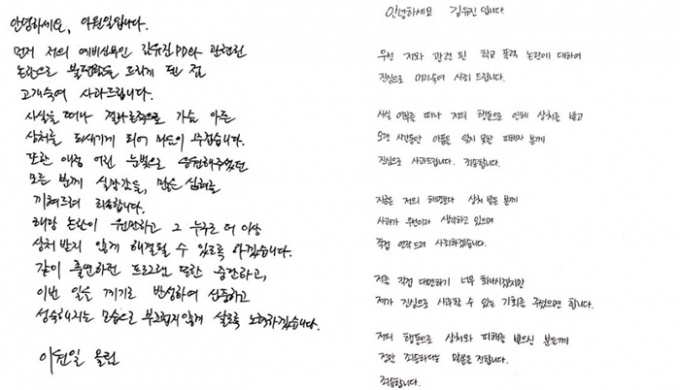 안녕하세요, 이원일입니다.
먼저 저의 예비신부인 김유진PD와 관련된
논란으로 불편함을 드리게 된 점
고개숙여 사과드립니다.
사실을 떠나 결과론적으로 가슴 아픈
상처를 되새기게 되어 마음이 무겁습니다.
또한 애정 어린 눈빛으로 응원해주셨던
모든 분께 실망감을, 많은 심려를
끼쳐드려 죄송합니다.
해당 논란이 원만하고 그 누구도 더 이상
상처 받지 않게 해결될 수 있도록 하겠습니다.
같이 출연하던 프로그램 또한 중단하고,
이번 일을 계기로 반성하여 신중하고
성숙해지는 모습으로 부끄럽지않게 살도록 노력하겠습니다.
이원일 올림
안녕하세요 김유진 입니다
우선 저와 관련 된 학교 폭력 논란에 대하여
진심으로 머리숙여 사죄 드립니다.
사실 여부를 떠나 저의 행동으로 인해 상처를 받고
오랜 시간동안 아픔을 잊지 못한 피해자 분께
진심으로 사과드립니다. 죄송합니다.
지금은 저의 해명보다 상처 받은 분께
사과가 우선이라 생각하고 있으며
직접 연락 드려 사죄하겠습니다.
저를 직접 대면하기 너무 화나시겠지만
제가 진심으로 사과할 수 있는 기회를 주셨으면 합니다.
저의 행동으로 상처와 피해를 받으신 분들께
정말 죄송하다는 말씀을 전합니다.
죄송합니다.